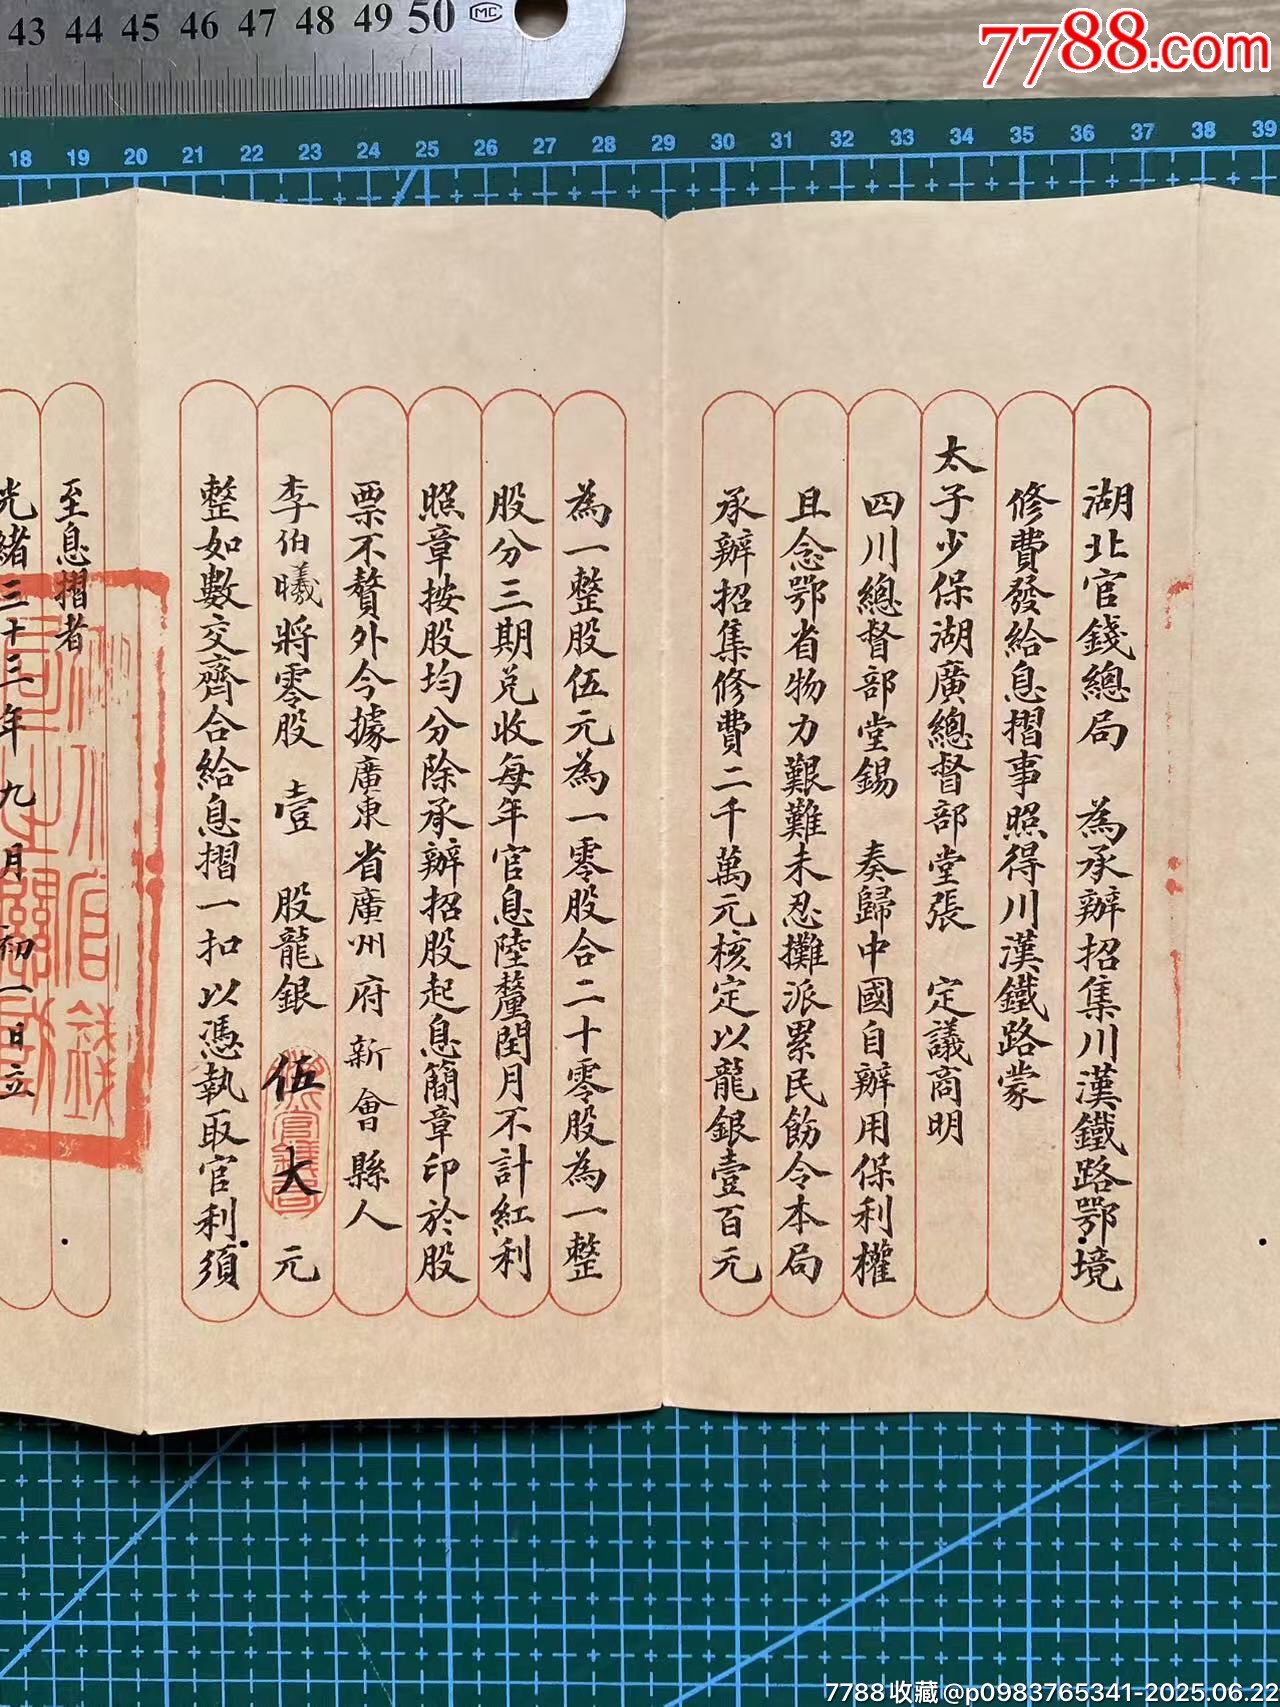 43 44 45 46 47 48 49 50 MC
7788.com
18 19 20 21 22 23 24 25 26 27 28 29 30 31 32 33 34 35 36 37 38 39
湖北官錢總局 為承辦招集川漢鐵路鄂境
修費發給息摺事照得川漢鐵路蒙
太子少保湖廣總督部堂張 定議商明
四川總督部堂錫 奏歸中國自辦用保利權
且念鄂省物力艱難未忍攤派累民飭令本局
承辦招集修費二千萬元核定以龍銀壹百元
為一整股伍元為一零股合二十零股為一整
股分三期兑收每年官息陸釐閏月不計紅利
照章按股均分除承辦招股起息簡章印於股
票不贅外今據廣東省廣州府新會縣人
李伯曦將零股 壹 股龍銀 伍大元
整如數交齊合給息摺一扣以憑執取官利須
至息摺者
光緒三十三年九月初一日立
7788收藏@p0983765341-2025.06.22